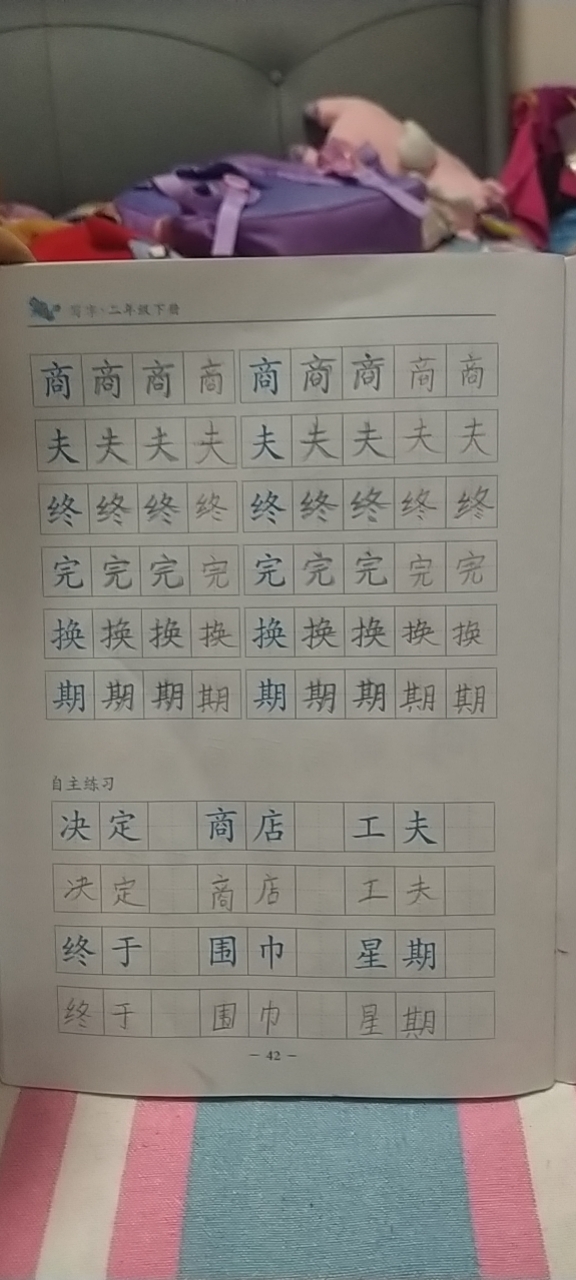 写字·二年级下册
商商商商商商商商商
夫夫夫夫夫夫夫夫夫
终终终终终终终终终
完完完完完完完完完
换换换换换换换换换
期期期期期期期期期
自主练习
决定 商店 工夫
决定 商店 工夫
终于 围巾 星期
终于 围巾 星期
— 42 —